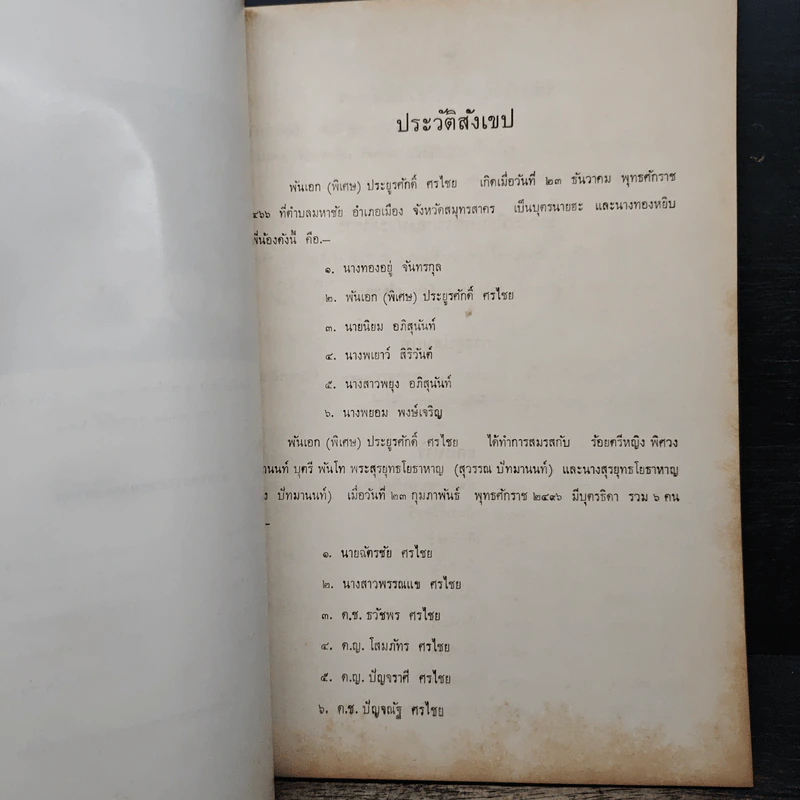 ประวัติสังเขป
พันเอก (พิเศษ) ประยูรศักดิ์ ศรไชย เกิดเมื่อวันที่ ๒๓ ธันวาคม พุทธศักราช
๔๖๖ ที่ตำบลมหาชัย อำเภอเมือง จังหวัดสมุทรสาคร เป็นบุตรนายฮะ และนางทองหยิบ
พี่น้องดังนี้ คือ.—
๑. นางทองอยู่ จันทรกุล
๒. พันเอก (พิเศษ) ประยูรศักดิ์ ศรไชย
๓. นายนิยม อภิสุนันท์
๔. นางพเยาว์ สิริวันต์
๕. นางสาวพยุง อภิสุนันท์
๖. นางพยอม พงษ์เจริญ
พันเอก (พิเศษ) ประยูรศักดิ์ ศรไชย ได้ทำการสมรสกับ ร้อยตรีหญิง พิศวง
มานนท์ บุตรี พันโท พระสุรยุทธโยธาหาญ (สุวรรณ ปัทมานนท์) และนางสุรยุทธโยธาหาญ
ง ปัทมานนท์) เมื่อวันที่ ๒๓ กุมภาพันธ์ พุทธศักราช ๒๔๙๖ มีบุตรธิดา รวม ๖ คน
—
๑. นายฉัตรชัย ศรไชย
๒. นางสาวพรรณแข ศรไชย
๓. ด.ช. ธวัชพร ศรไชย
๔. ด.ญ. โสมภัทร ศรไชย
๕. ด.ญ. ปัญจราศี ศรไชย
๖. ด.ช. ปัญจณัฐ ศรไชย